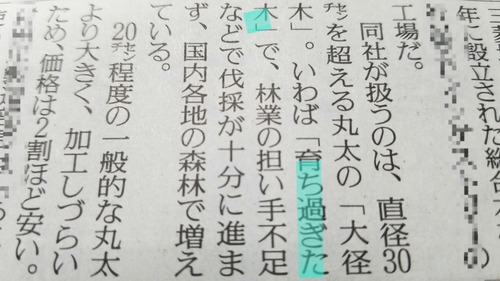 年に設立された総合
工場だ。
同社が扱うのは、直径30
㌢を超える丸太の「大径
木」。いわば「育ち過ぎた
木」で、林業の担い手不足
などで伐採が十分に進ま
ず、国内各地の森林で増え
ている。
20㌢程度の一般的な丸太
より大きく、加工しづらい
ため、価格は2割ほど安い。